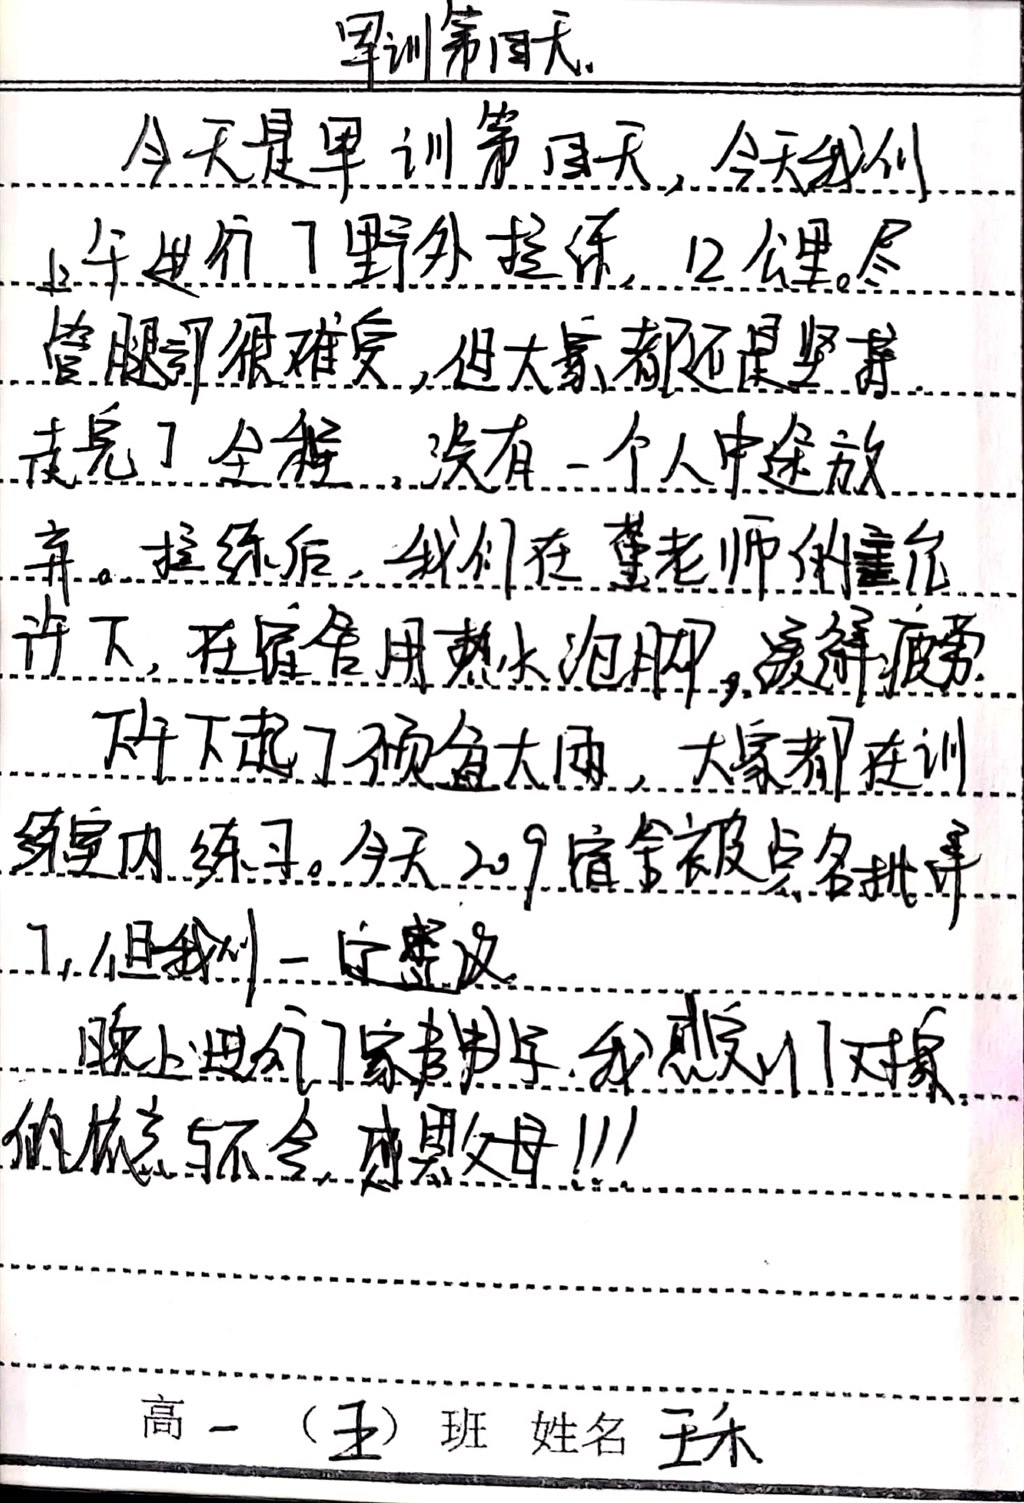 军训第四天.
今天是军训第四天,今天我们
上午进行了野外拉练,12公里。尽
管腿部很难受,但大家都还是坚持
走完了全程,没有一个人中途放
弃。拉练后,我们在董老师的允
许下,在宿舍用热水泡脚,缓解疲劳
下午下起了倾盆大雨,大家都在训
练室内练习。今天209宿舍被点名批评
了,但我们一定整改
晚上进行了家书书写.我感
的与不舍,感恩父母!!!
高一(五)班 姓名 王